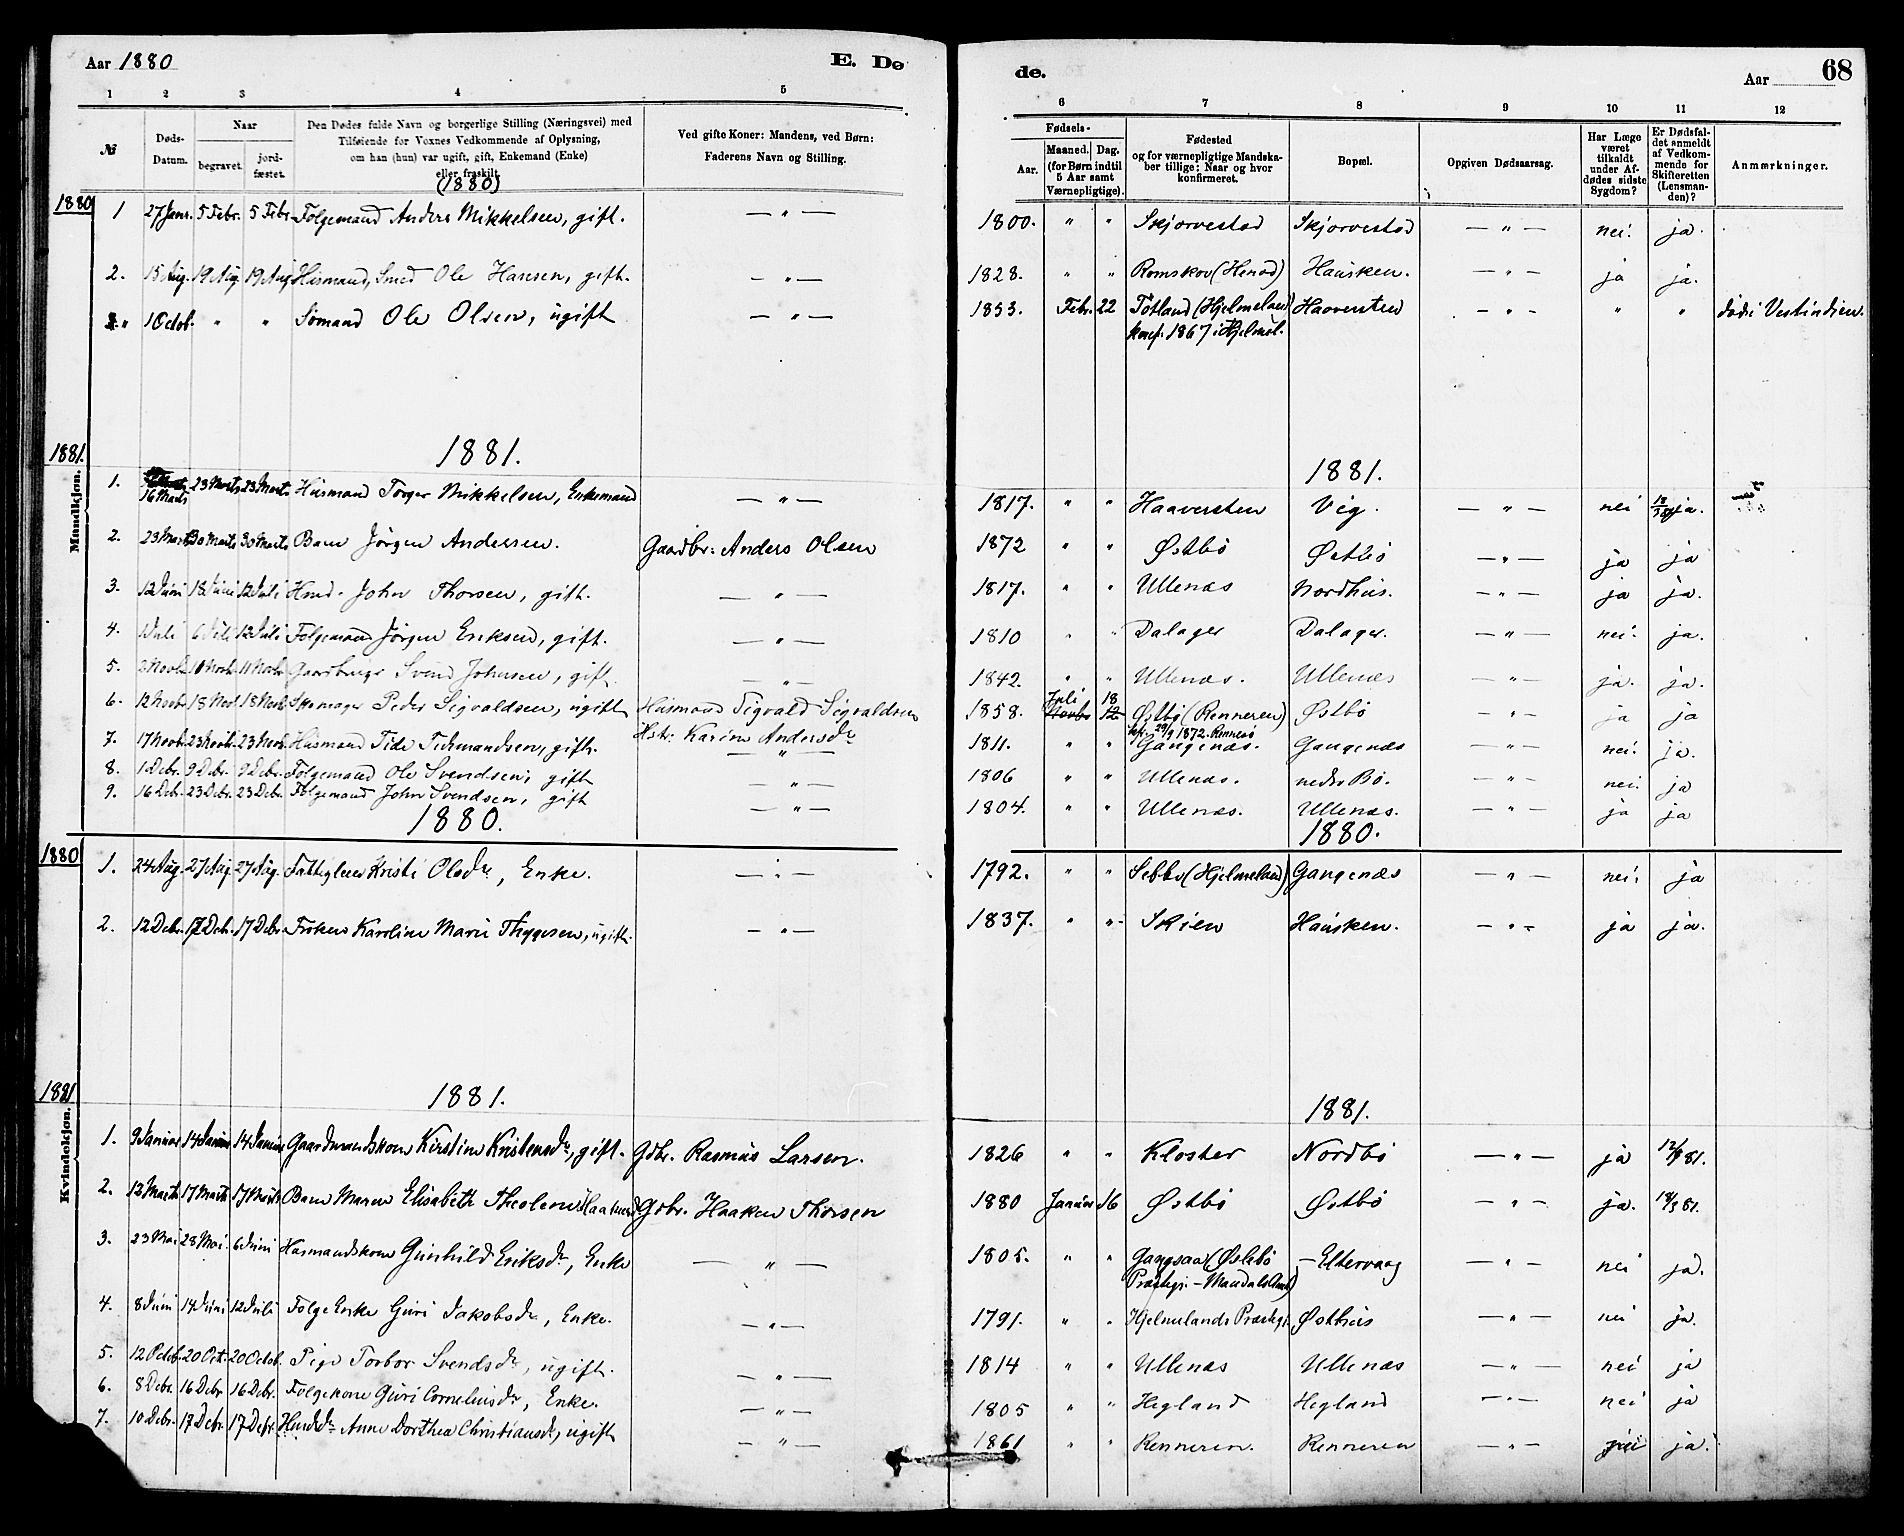 Aar 1880
E. Dø
1 2 3 4 5
№
Døds-Datum.
Naar
begravet. jordfæstet.
Den Dødes fulde Navn og borgerlige Stilling (Næringsvei) med
Tilføiende for Voxnes Vedkommende af Oplysning,
om han (hun) var ugift, gift, Enkemand (Enke)
eller fraskilt.
(1880)
Ved gifte Koner: Mandens, ved Børn:
Faderens Navn og Stilling.
1880
1 27 Janr. 5 Febr. 5 Febr Folgemand Anders Mikkelsen, gift. — " —
2. 15 Aug. 19 Aug 19 Aug Husmand, Smed Ole Hansen, gift. — " —
" 1 Octob. " " Sømand Ole Olsen, ugift — " —
1881.
1881.
Mandkjøn.
1. 16 Marts 23 Marts 23 Marts Husmand Torger Mikkelsen, Enkemand — " —
2. 23 Marts 30 Marts 30 Marts Barn Jørgen Andersen. Gaardbr: Anders Olsen
3. 12 Juni 18 Juni 12 Juli Hmd. John Thorsen, gift. — " —
4. 1 Juli 6 Juli 12 Juli Folgemand Jørgen Eriksen, gift. — " —
5. 2 Novb. 10 Novb. 11 Novb. Gaardbruger Svend Johnsen, gift — " —
6. 12 Novb. 18 Novb 18 Novb. Skomager Peder Sigvaldsen, ugift Husmand Sigvald Sigvaldsen
Hstr: Karine Andersdr
7. 17 Novb. 23 Novb. 23 Novb. Husmand Tide Tidemandsen, gift. — " —
8. 1 Debr. 9 Debr. 9 Debr. Folgemand Ole Svendsen, gift — " —
9. 16 Debr. 23 Debr. 23 Debr. Folgemand John Svendsen, gift — " —
1880.
1880
1. 24 Aug. 27 Aug. 27 Aug. Fattiglem Kristi Olsdr, Enke. — " —
2. 12 Debr. 17 Debr. 17 Debr. Frøken Karoline Marie Thygesen, ugift. — " —
1881
1881.
Kvindekjøn.
1. 9 Januar 14 Januar 14 Januar Gaardmandskone Kirstine Kristensdr, gift. Gdbr. Rasmus Larsen.
2. 12 Marts 17 Marts 17 Marts Barn Maren Elisabeth Theoline Gdbr. Haaken Thorsen
3. 23 Mai 28 Mai. 6 Juni Husmandskone Gunhild Eriksdr, Enke — " —
4. 8 Juni 14 Juni 12 Juli Folge Enke Guri Jakobsdr, Enke. — " —
5. 12 Octob. 20 Oct. 20 Octob. Pige Torbor Svendsdr, ugift. — " —
6. 8 Debr. 16 Debr 16 Debr. Folgekone Guri Corneliusdr, Enke. — " —
7. 10 Debr. 17 Debr. 17 Debr. Hmdsdr Anne Dorthea Christiansdr, ugift — " —
de.
Aar 68
6 7 8 9 10 11 12
Fødsels-
Aar. Maaned. Dag.
(for Børn indtil
5 Aar samt
Værnepligtige).
Fødested
og for værnepligtige Mandskaber tillige: Naar og hvor
konfirmeret.
Bopæl.
Opgiven Dødsaarsag.
Har Læge
været
tilkaldt
under Afdødes sidste
Sygdom?
Er Dødsfaldet anmeldt
af Vedkommende for
Skifteretten
(Lensmanden)?
Anmærkninger.
1800. " " Skjørvestad Skjørvestad — " — nei. ja.
1828. " " Romskov (Henød) Hausken. — " — ja ja.
1853. Febr. 22 Tøtland (Hjelmeland) Haaversten — " — " " død i Vestindien.
konf. 1867 i Hjelmel.
1881.
1817. " " Haaversten Vig. — " — nei ja.
1872 " " Østbø Østbø — " — ja ja
1817. " " Ullenæs Nordhus. — " — ja ja.
1810 " " Dalager Dalager. — " — nei. ja.
1842. " " Ullenæs. Ullenæs — " — ja. ja.
1858. Juli 18 Novb. 12 Østbø (Renneren) Østbø — " — ja ja
29/9 1872. Rennesø
1811. " " Gangenæs. Gangenæs — " — nei. ja.
1806 " " Ullenæs. nedre Bø. — " — nei. ja
1804. " " Ullenæs. Ullenæs. — " — ja ja
1880.
1792. " " Sebbø (Hjelmeland) Gangenæs — " — nei. ja
1837. " " Skien Hausken. — " — ja ja.
1881.
1826 " " Kloster Nordbø — " — ja 12/1 81.
1880 Januar 16 Østbø Østbø — " — ja. 18/3 81.
1805. " " Gangsaa (Øslebø — Eltervaag — " — nei ja.
Præstegj. — Mandals Amt)
1791. " " Hjelmelands Præstegj. Østhus — " — nei ja.
1814 " " Ullenæs Ullenæs — " — nei ja
1805 " " Hegland Hegland — " — nei ja
1861 " " Renneren. Renneren — " — nei ja.